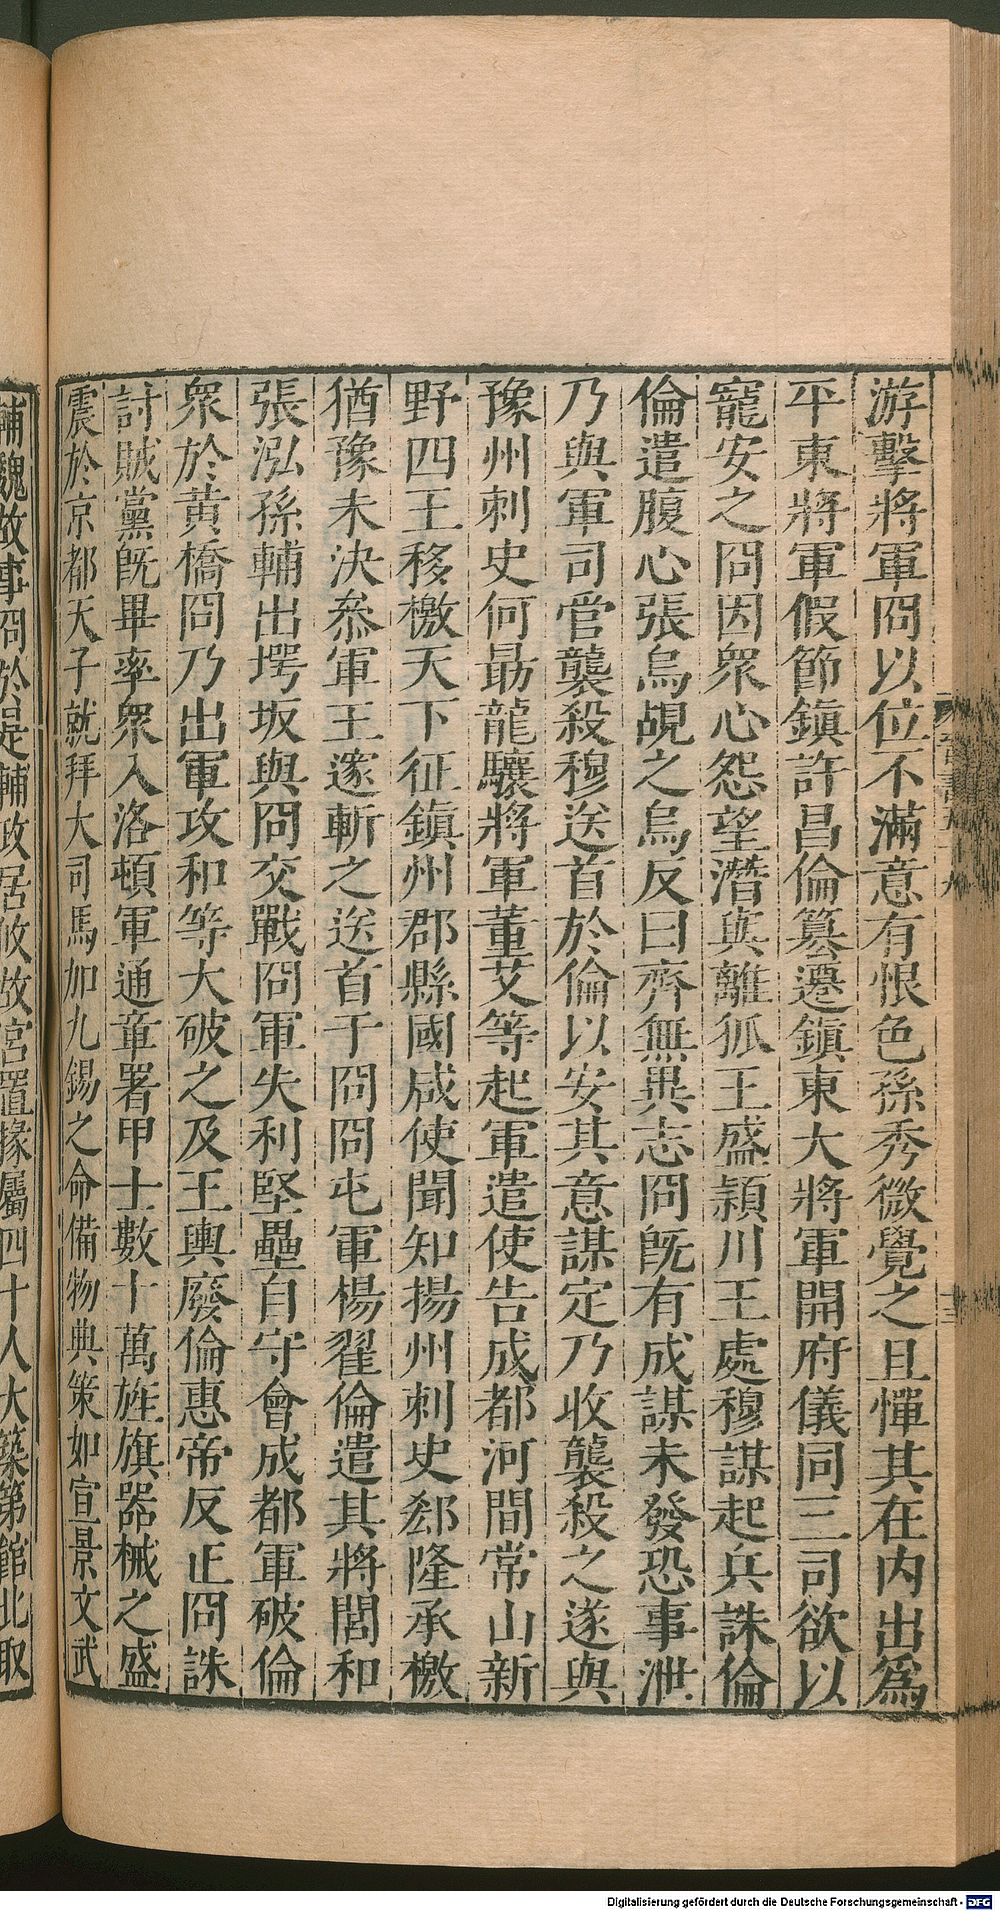 游擊將軍冏以位不滿意有恨色孫秀微覺之且憚其在內出爲
平東將軍假節鎭許昌倫篡遷鎭東大將軍開府儀同三司欲以
寵安之冏因衆心怨望潛與離狐王盛潁川王處穆謀起兵誅倫
倫遣腹心張烏覘之烏反曰齊無異志冏旣有成謀未發恐事泄
乃與軍司管襲殺穆送首於倫以安其意謀定乃收襲殺之遂與
豫州刺史何勗龍驤將軍董艾等起軍遣使告成都河間常山新
野四王移檄天下征鎭州郡縣國咸使聞知揚州刺史郄隆承檄
猶豫未決叅軍王邃斬之送首于冏冏屯軍楊翟倫遣其將閭和
張泓孫輔出堮坂與冏交戰冏軍失利堅壘自守會成都軍破倫
衆於黄橋冏乃出軍攻和等大破之及王輿廢倫惠帝反正冏誅
討賊黨旣畢率衆入洛頓軍通章署甲士數十萬旌旗器械之盛
震於京都天子就拜大司馬加九錫之命備物典策如宣景文武
輔魏故事冏於是輔政居攸故宮置掾屬四十人大築第館北取
Digitalisierung gefördert durch die Deutsche Forschungsgemeinschaft - DFG